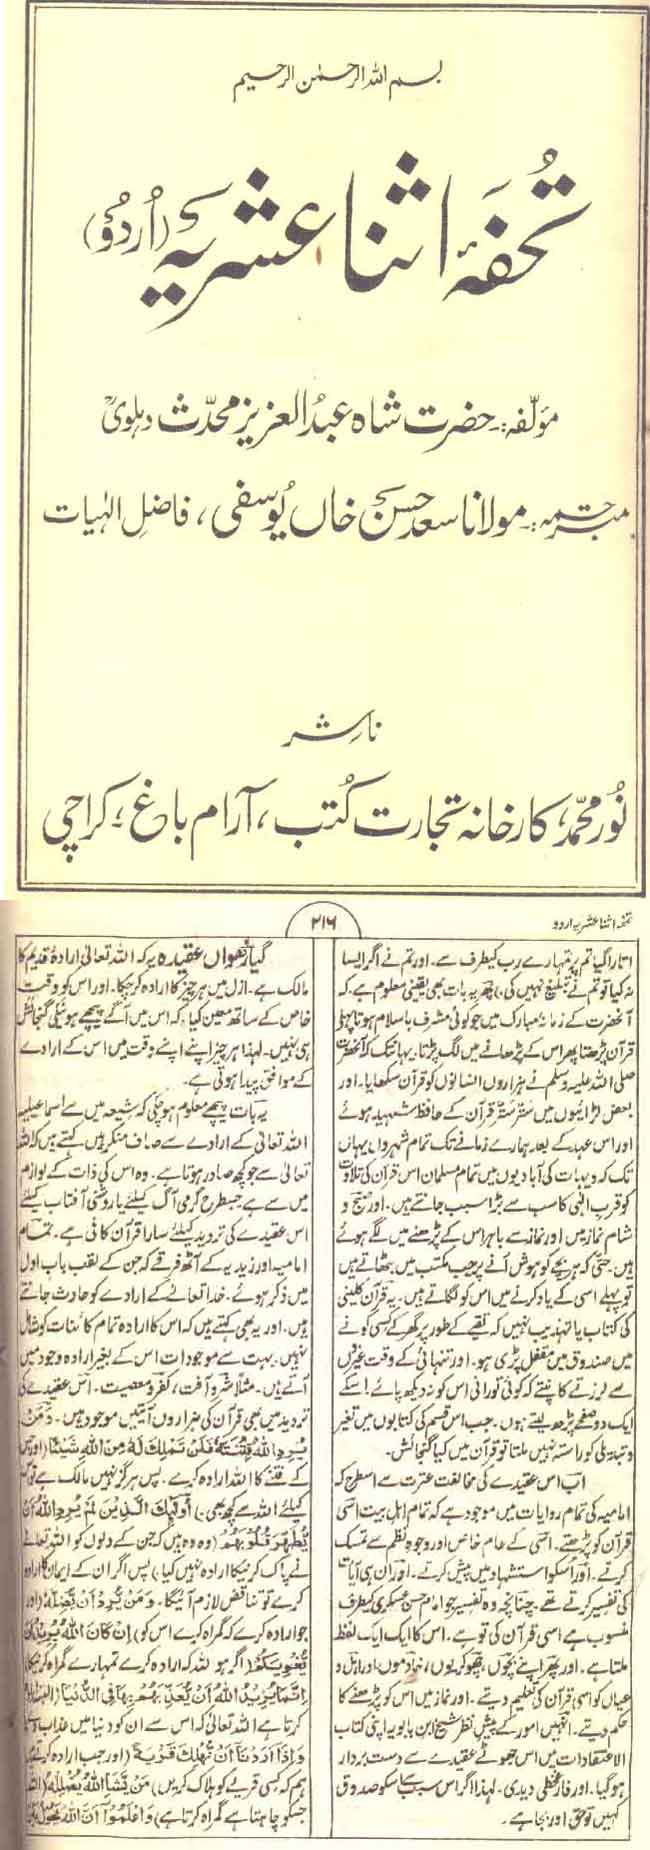 بسم اللہ الرحمٰن الرحیم
تحفۂ اثنا عشریہ (اُردُو)
مؤلّفہ:۔ حضرت شاہ عبدُ العزیز محدّث دہلویؒ
مترجمہ:۔ مولانا سعد حسن خاں یُوسفی، فاضلِ الٰہیات
ناشر
نُور محمّد، کارخانہ تجارت کُتب، آرام باغ، کراچی
تحفہ اثنا عشریہ اردو
۲۱۶
اتارا گیا تم پر تمہارے رب کیطرف سے۔ اور تم نے اگر ایسا
نہ کیا تو تم نے تبلیغ نہیں کی) پھر یہ بات بھی یقینی معلوم ہے کہ
آنحضرت کے زمانہ مبارک میں جو کوئی مشرف باسلام ہوتا پہلی
قرآن پڑھتا پھر اس کے پڑھانے میں لگ پڑتا۔ یہانتک کہ آنحضرت
صلی اللہ علیہ وسلم نے ہزاروں انسانوں کو قرآن سکھایا۔ اور
بعض لڑائیوں میں ستر ستر قرآن کے حافظ شہید ہوئے
اور اس عہد کے بعد ہمارے زمانے تک تمام شہروں یہاں
تک کہ دیہات کی آبادیوں میں تمام مسلمان اس قرآن کی تلاوت
کو قرب الٰہی کا سب سے بڑا سبب جانتے ہیں۔ اور صبح و
شام نماز میں اور نماز سے باہر اس کے پڑھنے میں لگے ہوئے
ہیں۔ حتیٰ کہ ہر بچے کو ہوش آنے پر جب مکتب میں بٹھاتے ہیں
تو پہلے اسی کے یاد کرنے میں اس کو لگاتے ہیں۔ یہ قرآن کلینی
کی کتاب یا تہذیب نہیں کہ تقیے کے طور پر گھر کے کسی کونے
میں صندوق میں مقفل پڑی ہو۔ اور تنہائی کے وقت
سے لرزتے کانپتے کہ کوئی تورانی اس کو نہ دیکھ پائے! اسکے
ایک دو صفحے پڑھ لیتے ہوں۔ جب اس قسم کی کتابوں میں تغیر
و تبدیلی کو راستہ نہیں ملتا تو قرآن میں کیا گنجائش۔
اب اس عقیدے کی مخالفت عترت سے اسطرح کہ
امامیہ کی تمام روایات میں موجود ہے کہ تمام اہل بیت اسی
قرآن کو پڑھتے۔ اسی کے عام خاص اور وجوہِ نظم سے تمسک
کرتے۔ اور اسکو استشہاد میں پیش کرتے۔ اور ان ہی آیات
کی تفسیر کرتے تھے۔ چنانچہ وہ تفسیر جو امام حسن عسکری کیطرف
منسوب ہے اسی قرآن کی تو ہے۔ اس کا ایک ایک لفظ
ملتا ہے۔ اور پھر اپنے بچوں، چھوکریوں، خادموں، اور اہل و
عیال کو اسی قرآن کی تعلیم دیتے۔ اور نماز میں اس کو پڑھنے کا
حکم دیتے۔ انہیں امور کے پیشِ نظر شیخ ابن بابویہ اپنی کتاب
الاعتقادات میں اس جھوٹے عقیدے سے دست بردار
ہو گیا۔ اور فارغخطی دیدی۔ لہٰذا اگر اس سبب سے اسکو صدوق
کہیں تو حق اور بجا ہے۔
گیارھواں عقیدہ یہ کہ اللہ تعالیٰ ارادہ قدیم کا
مالک ہے۔ ازل میں ہر چیز کا ارادہ کر چکا۔ اور اس کو وقت
خاص کے ساتھ معین کیا، کہ اس میں آگے پیچھے ہونیکی گنجائش
ہی نہیں۔ لہذا ہر چیز اپنے اپنے وقت میں اس کے ارادے
کے موافق پیدا ہوتی ہے۔
یہ بات پیچھے معلوم ہو چکی کہ شیعہ میں سے اسماعیلیہ
اللہ تعالیٰ کے ارادے سے صاف منکر ہیں کہتے ہیں کہ اللہ
تعالیٰ سے جو کچھ صادر ہوتا ہے۔ وہ اس کی ذات کے لوازم
میں سے ہے جسطرح گرمی آگ کیلئے یا روشنی آفتاب کیلئے
اس عقیدے کی تردید کیلئے سارا قرآن کافی ہے۔ تمام
امامیہ اور زیدیہ کے آٹھ فرقے کہ جن کے لقب باب اول
میں ذکر ہوئے۔ خدا تعالےٰ کے ارادے کو حادث جانتے
ہیں۔ اور یہ بھی کہتے ہیں کہ اس کا ارادہ تمام کائنات کو شامل
نہیں۔ بہت سے موجودات اس کے بغیر ارادہ وجود میں
آتے ہیں۔ مثلاً شر و آفت، کفر و معصیت۔ اس عقیدے کی
تردید میں بھی قرآن کی ہزاروں آیتیں موجود ہیں۔ وَمَنْ
يُّرِدِ اللّٰهُ فِتْنَتَهٗ فَلَنْ تَمْلِكَ لَهٗ مِنَ اللّٰهِ شَيْئًا (اور جس
کے فتنے کا اللہ ارادہ کرے۔ پس ہرگز نہیں مالک ہے تو اس
کیلئے اللہ سے کچھ بھی) اُولٰٓئِكَ الَّذِيْنَ لَمْ يُرِدِ اللّٰهُ اَنْ
يُّطَهِّرَ قُلُوْبَهُمْ (وہ وہ ہیں کہ جن کے دلوں کو اللہ تعالےٰ
نے پاک کرنیکا ارادہ نہیں کیا) پس اگر ان کے ایمان کا ارادہ
کرے تو تناقض لازم آئیگا۔ وَمَنْ يُّرِدْ اَنْ يُّضِلَّهٗ (اور
جو ارادہ کرے کہ گمراہ کرے اس کو) اِنْ كَانَ اللّٰهُ يُرِيْدُ اَنْ
يُّغْوِيَكُمْ (اگر ہو اللہ کہ ارادہ کرے تمہارے گمراہ کرنیکا)
اِنَّمَا يُرِيْدُ اللّٰهُ اَنْ يُّعَذِّبَهُمْ بِهَا فِي الدُّنْيَا
کرتا ہے اللہ تعالیٰ کہ اس سے ان کو دنیا میں عذاب دے
وَاِذَا اَرَدْنَا اَنْ نُّهْلِكَ قَرْيَةً (اور جب ارادہ کرتے ہیں
ہم کہ کسی قریے کو ہلاک کریں) مَنْ يَّشَاِ اللّٰهُ يُضْلِلْهُ (اللہ
جسکو چاہتا ہے گمراہ کرتا ہے) وَاعْلَمُوْٓا اَنَّ اللّٰهَ يَحُوْلُ بَيْنَ